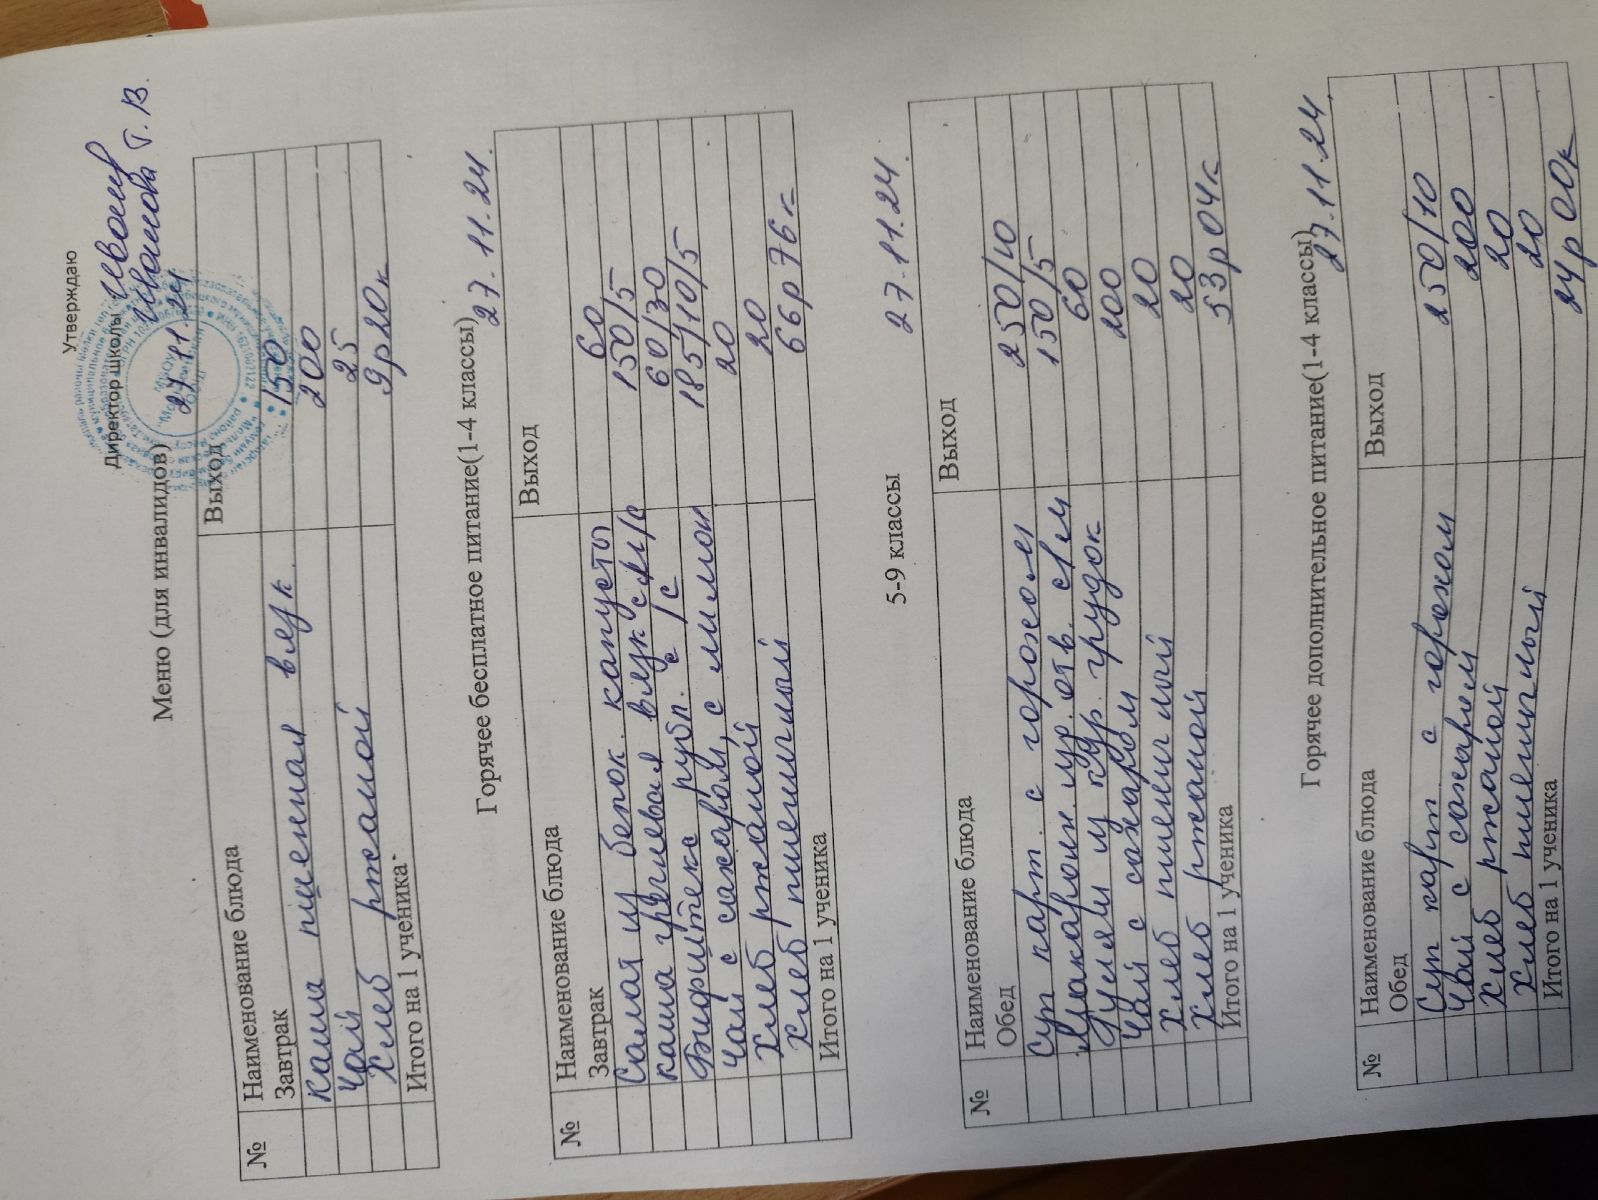 Утверждаю
Директор школы
Иванова Т. В.
27.11.24
Меню (для инвалидов)
№ Наименование блюда Выход
Завтрак
Каша пшенная вязк. 150
Чай 200
Хлеб ржаной 25
Итого на 1 ученика 9р20к
Горячее бесплатное питание(1-4 классы)
27.11.24.
№ Наименование блюда Выход
Завтрак
Салат из белок. капусты 60
Каша гречневая вязк с м/с 150/5
Бифштекс рубл. с /с 60/30
Чай с сахаром, с лимон 185/10/5
Хлеб ржаной 20
Хлеб пшеничный 20
Итого на 1 ученика 66р76к
5-9 классы
27.11.24.
№ Наименование блюда Выход
Обед
Суп карт. с горохом 250/10
Макарон.изд.отв. с/м 150/5
Гуляш из кур. грудок 60
Чай с сахаром 200
Хлеб пшеничный 20
Хлеб ржаной 20
Итого на 1 ученика 53р04к
Горячее дополнительное питание(1-4 классы)
27.11.24
№ Наименование блюда Выход
Обед
Суп карт с горохом 250/10
Чай с сахаром 200
Хлеб ржаной 20
Хлеб пшеничный 20
Итого на 1 ученика 24р00к